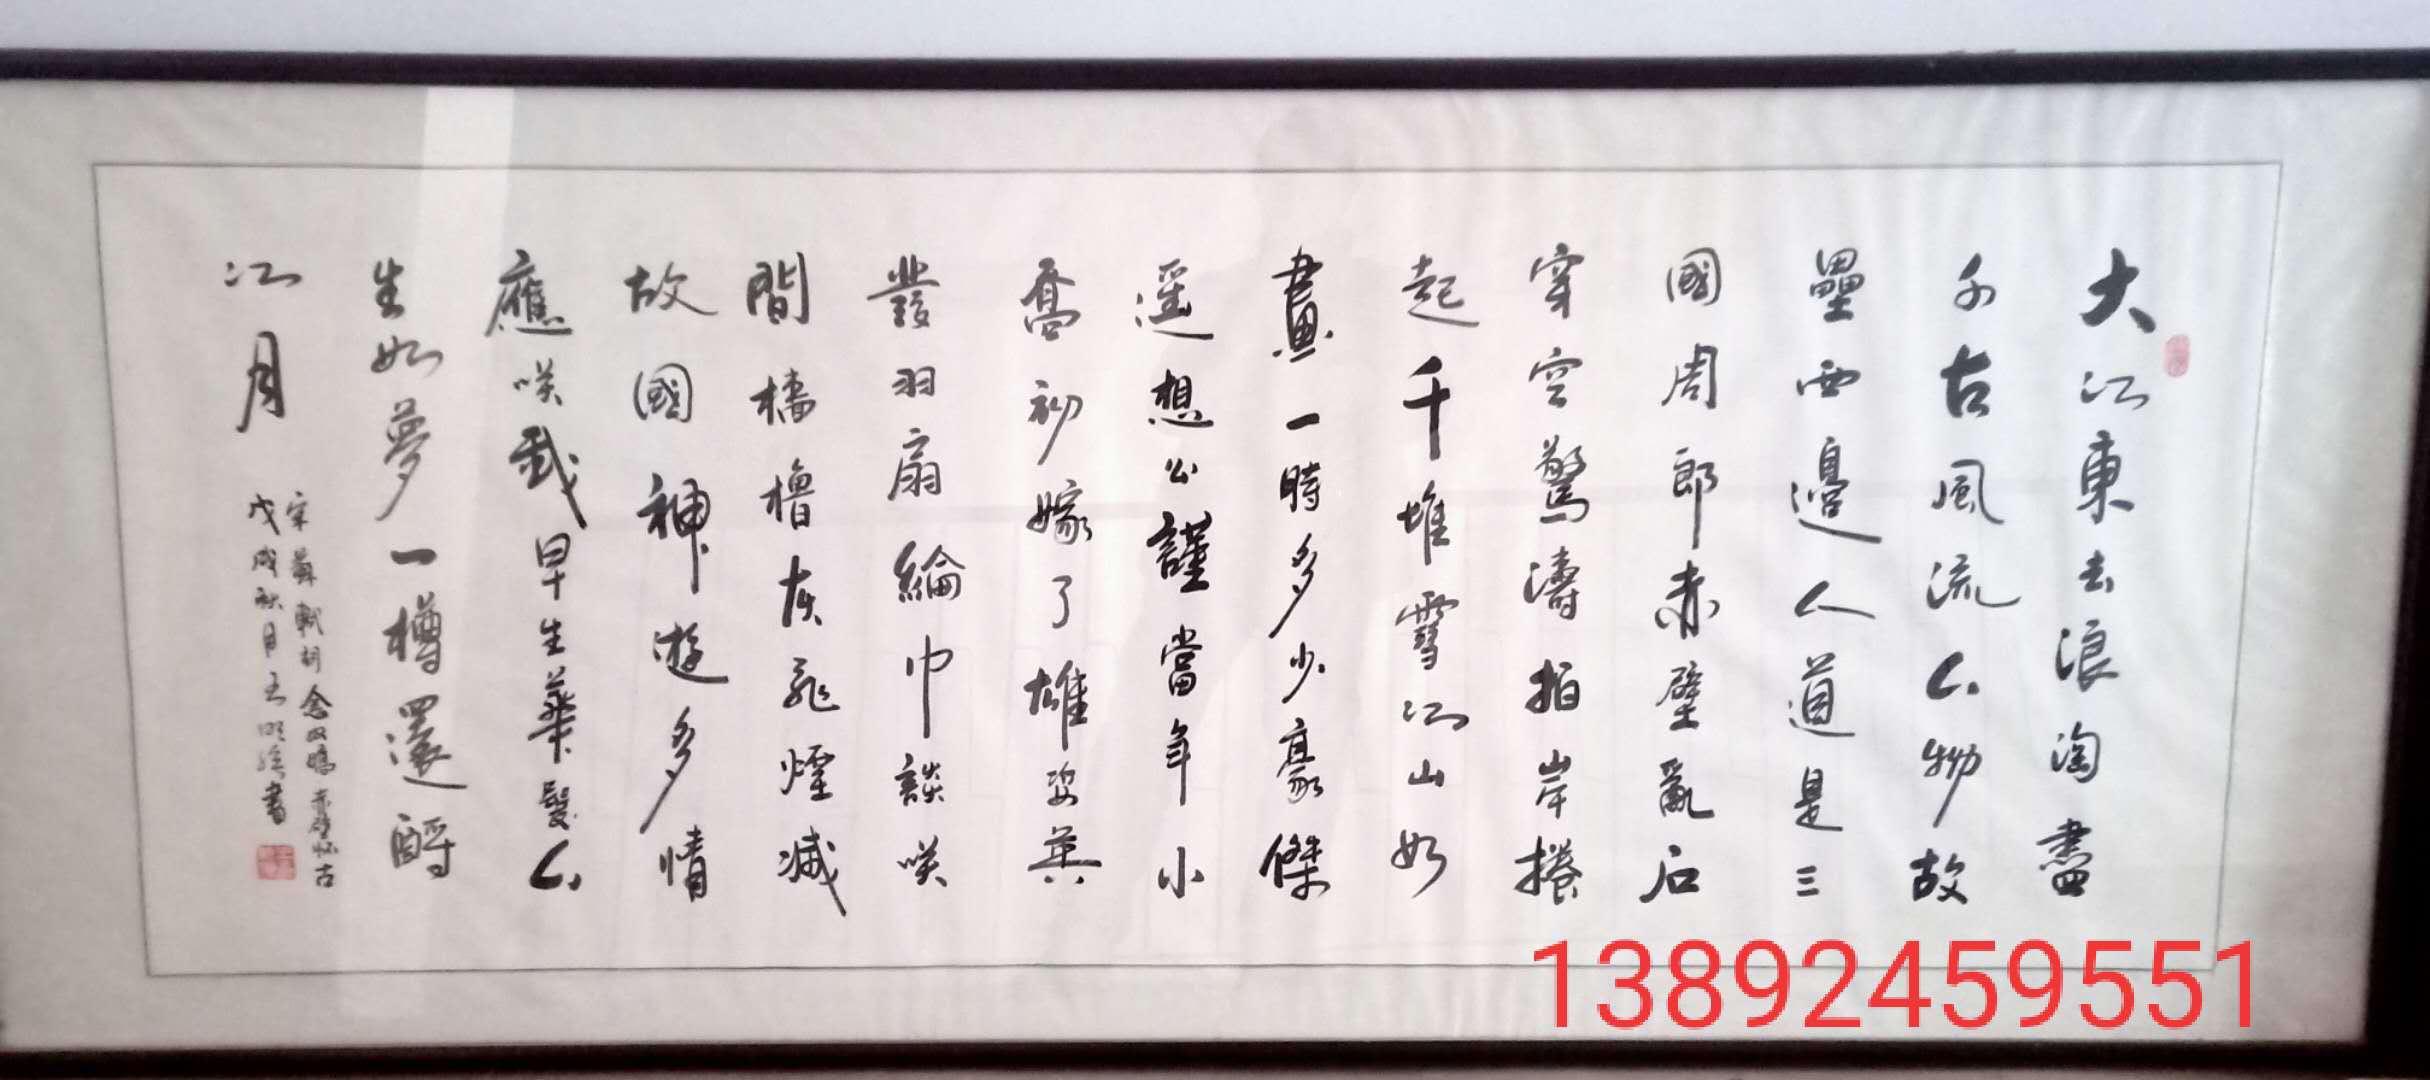 大江東去浪淘盡
千古風流人物故
壘西邊人道是三
國周郎赤壁亂石
穿空驚濤拍岸捲
起千堆雪江山如
畫一時多少豪傑
遥想公謹當年小
喬初嫁了雄姿英
發羽扇綸巾談咲
間檣櫓灰飛煙滅
故國神遊多情
應咲我早生華髮人
生如夢一樽還酹
江月
宋蘇軾詞念奴嬌赤壁怀古
戊戌秋月王明書
13892459551